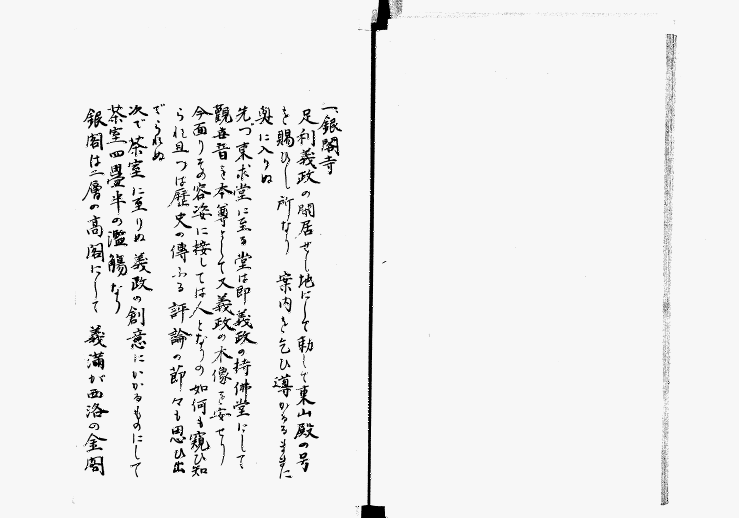 一、銀閣寺
足利義政の閑居せし地にして勅して東山殿の号
を賜ひし所なり 案内を乞ひ導かるるままに
奥に入りぬ
先づ東求堂に至る堂は即義政の持佛堂にして
觀世音を本尊として又義政の木像を安せり
今面りその容姿に接しては人となりの如何も窺ひ知
られ且つは歴史の傳ふる評論の節々も思ひ出
でられぬ
次で茶室に至りぬ 義政の創意にかかるものにして
茶室四畳半の濫觴なり
銀閣は二層の高閣にして 義満が西洛の金閣